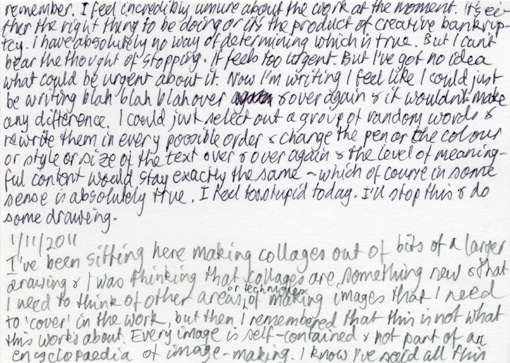 remember. I feel incredibly unsure about the work at the moment. It's ei-
ther the right thing to be doing or it's the product of creative bankrup-
tcy. I have absolutely no way of determining which is true. But I can't
bear the thought of stopping. It feels too urgent. But I've got no idea
what could be urgent about it. Now I'm writing I feel like I could just
be writing blah blah blah over & over again & it wouldn't make
any difference. I could just select out a group of random words &
rewrite them in every possible order & change the pen or the colour
or style or size of the text over & over again & the level of meaning-
ful content would stay exactly the same - which of course in some
sense is absolutely true. I feel too stupid today. I'll stop this & do
some drawing.
1/11/2011
I've been sitting here making collages out of bits of a larger
drawing & I was thinking that collages are something new & that
I need to think of other areas, or techniques of making images that I need
to 'cover' in the work, but then I remembered that this is not what
this work's about. Every image is self-contained & not part of an
encyclopaedia of image-making. I know I've said all this